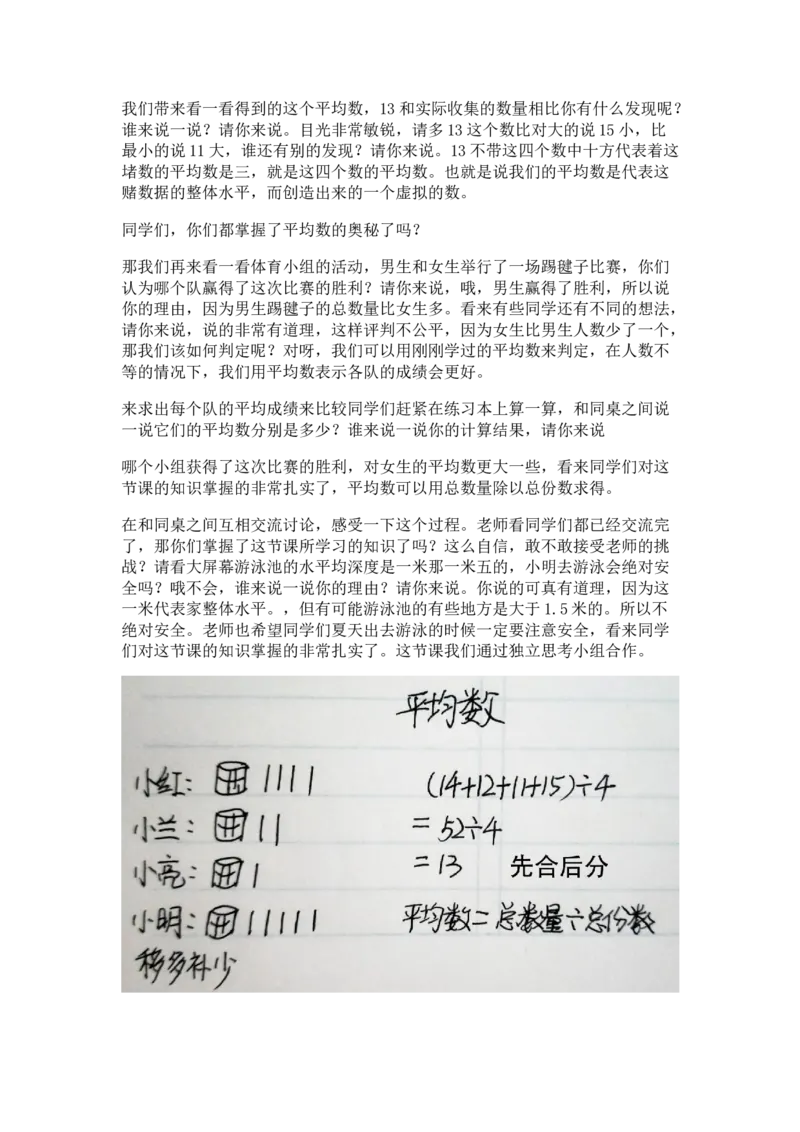 我们带来看一看得到的这个平均数，13 和实际收集的数量相比你有什么发现呢？
谁来说一说？请你来说。目光非常敏锐，请多 13 这个数比对大的说 15 小，比
最小的说 11 大，谁还有别的发现？请你来说。13 不带这四个数中十方代表着这
堵数的平均数是三，就是这四个数的平均数。也就是说我们的平均数是代表这
赌数据的整体水平，而创造出来的一个虚拟的数。
同学们，你们都掌握了平均数的奥秘了吗？
那我们再来看一看体育小组的活动，男生和女生举行了一场踢毽子比赛，你们
认为哪个队赢得了这次比赛的胜利？请你来说，哦，男生赢得了胜利，所以说
你的理由，因为男生踢毽子的总数量比女生多。看来有些同学还有不同的想法，
请你来说，说的非常有道理，这样评判不公平，因为女生比男生人数少了一个，
那我们该如何判定呢？对呀，我们可以用刚刚学过的平均数来判定，在人数不
等的情况下，我们用平均数表示各队的成绩会更好。
来求出每个队的平均成绩来比较同学们赶紧在练习本上算一算，和同桌之间说
一说它们的平均数分别是多少？谁来说一说你的计算结果，请你来说
哪个小组获得了这次比赛的胜利，对女生的平均数更大一些，看来同学们对这
节课的知识掌握的非常扎实了，平均数可以用总数量除以总份数求得。
在和同桌之间互相交流讨论，感受一下这个过程。老师看同学们都已经交流完
了，那你们掌握了这节课所学习的知识了吗？这么自信，敢不敢接受老师的挑
战？请看大屏幕游泳池的水平均深度是一米那一米五的，小明去游泳会绝对安
全吗？哦不会，谁来说一说你的理由？请你来说。你说的可真有道理，因为这
一米代表家整体水平。，但有可能游泳池的有些地方是大于 1.5 米的。所以不
绝对安全。老师也希望同学们夏天出去游泳的时候一定要注意安全，看来同学
们对这节课的知识掌握的非常扎实了。这节课我们通过独立思考小组合作。
平均数
小红： (14+12+11+15)÷4
小兰： =52÷4
小亮： =13 先合后分
小明： 平均数=总数量÷总份数
移多补少